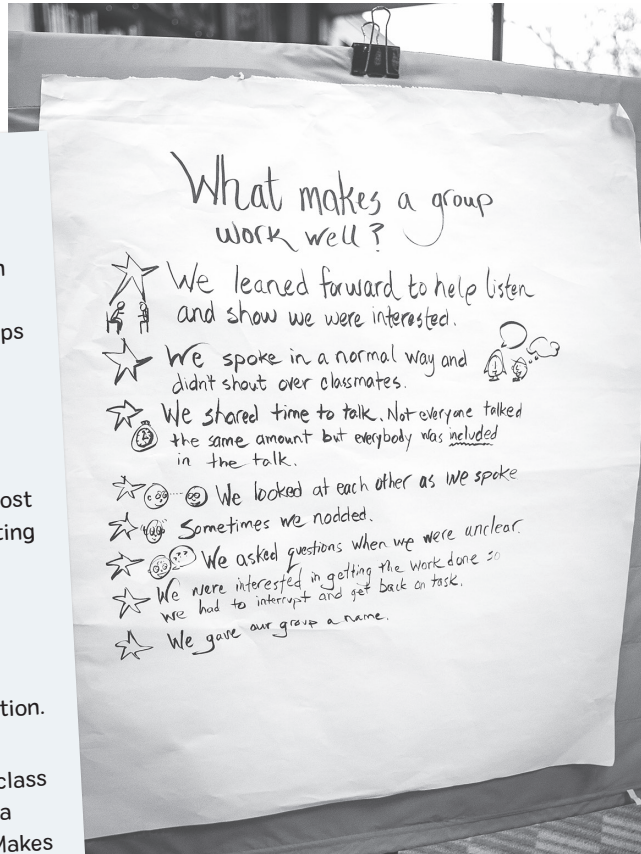 What makes a group
work well?
We leaned forward to help listen
and show we were interested.
We spoke in a normal way and
didn't shout over classmates.
We shared time to talk. Not everyone talked
the same amount but everybody was included
in the talk.
We looked at each other as we spoke
Sometimes we nodded.
We asked questions when we were unclear.
We were interested in getting the work done so
we had to interrupt and get back on task.
We gave our group a name.
ps
ost
ting
tion.
class
a
Makes